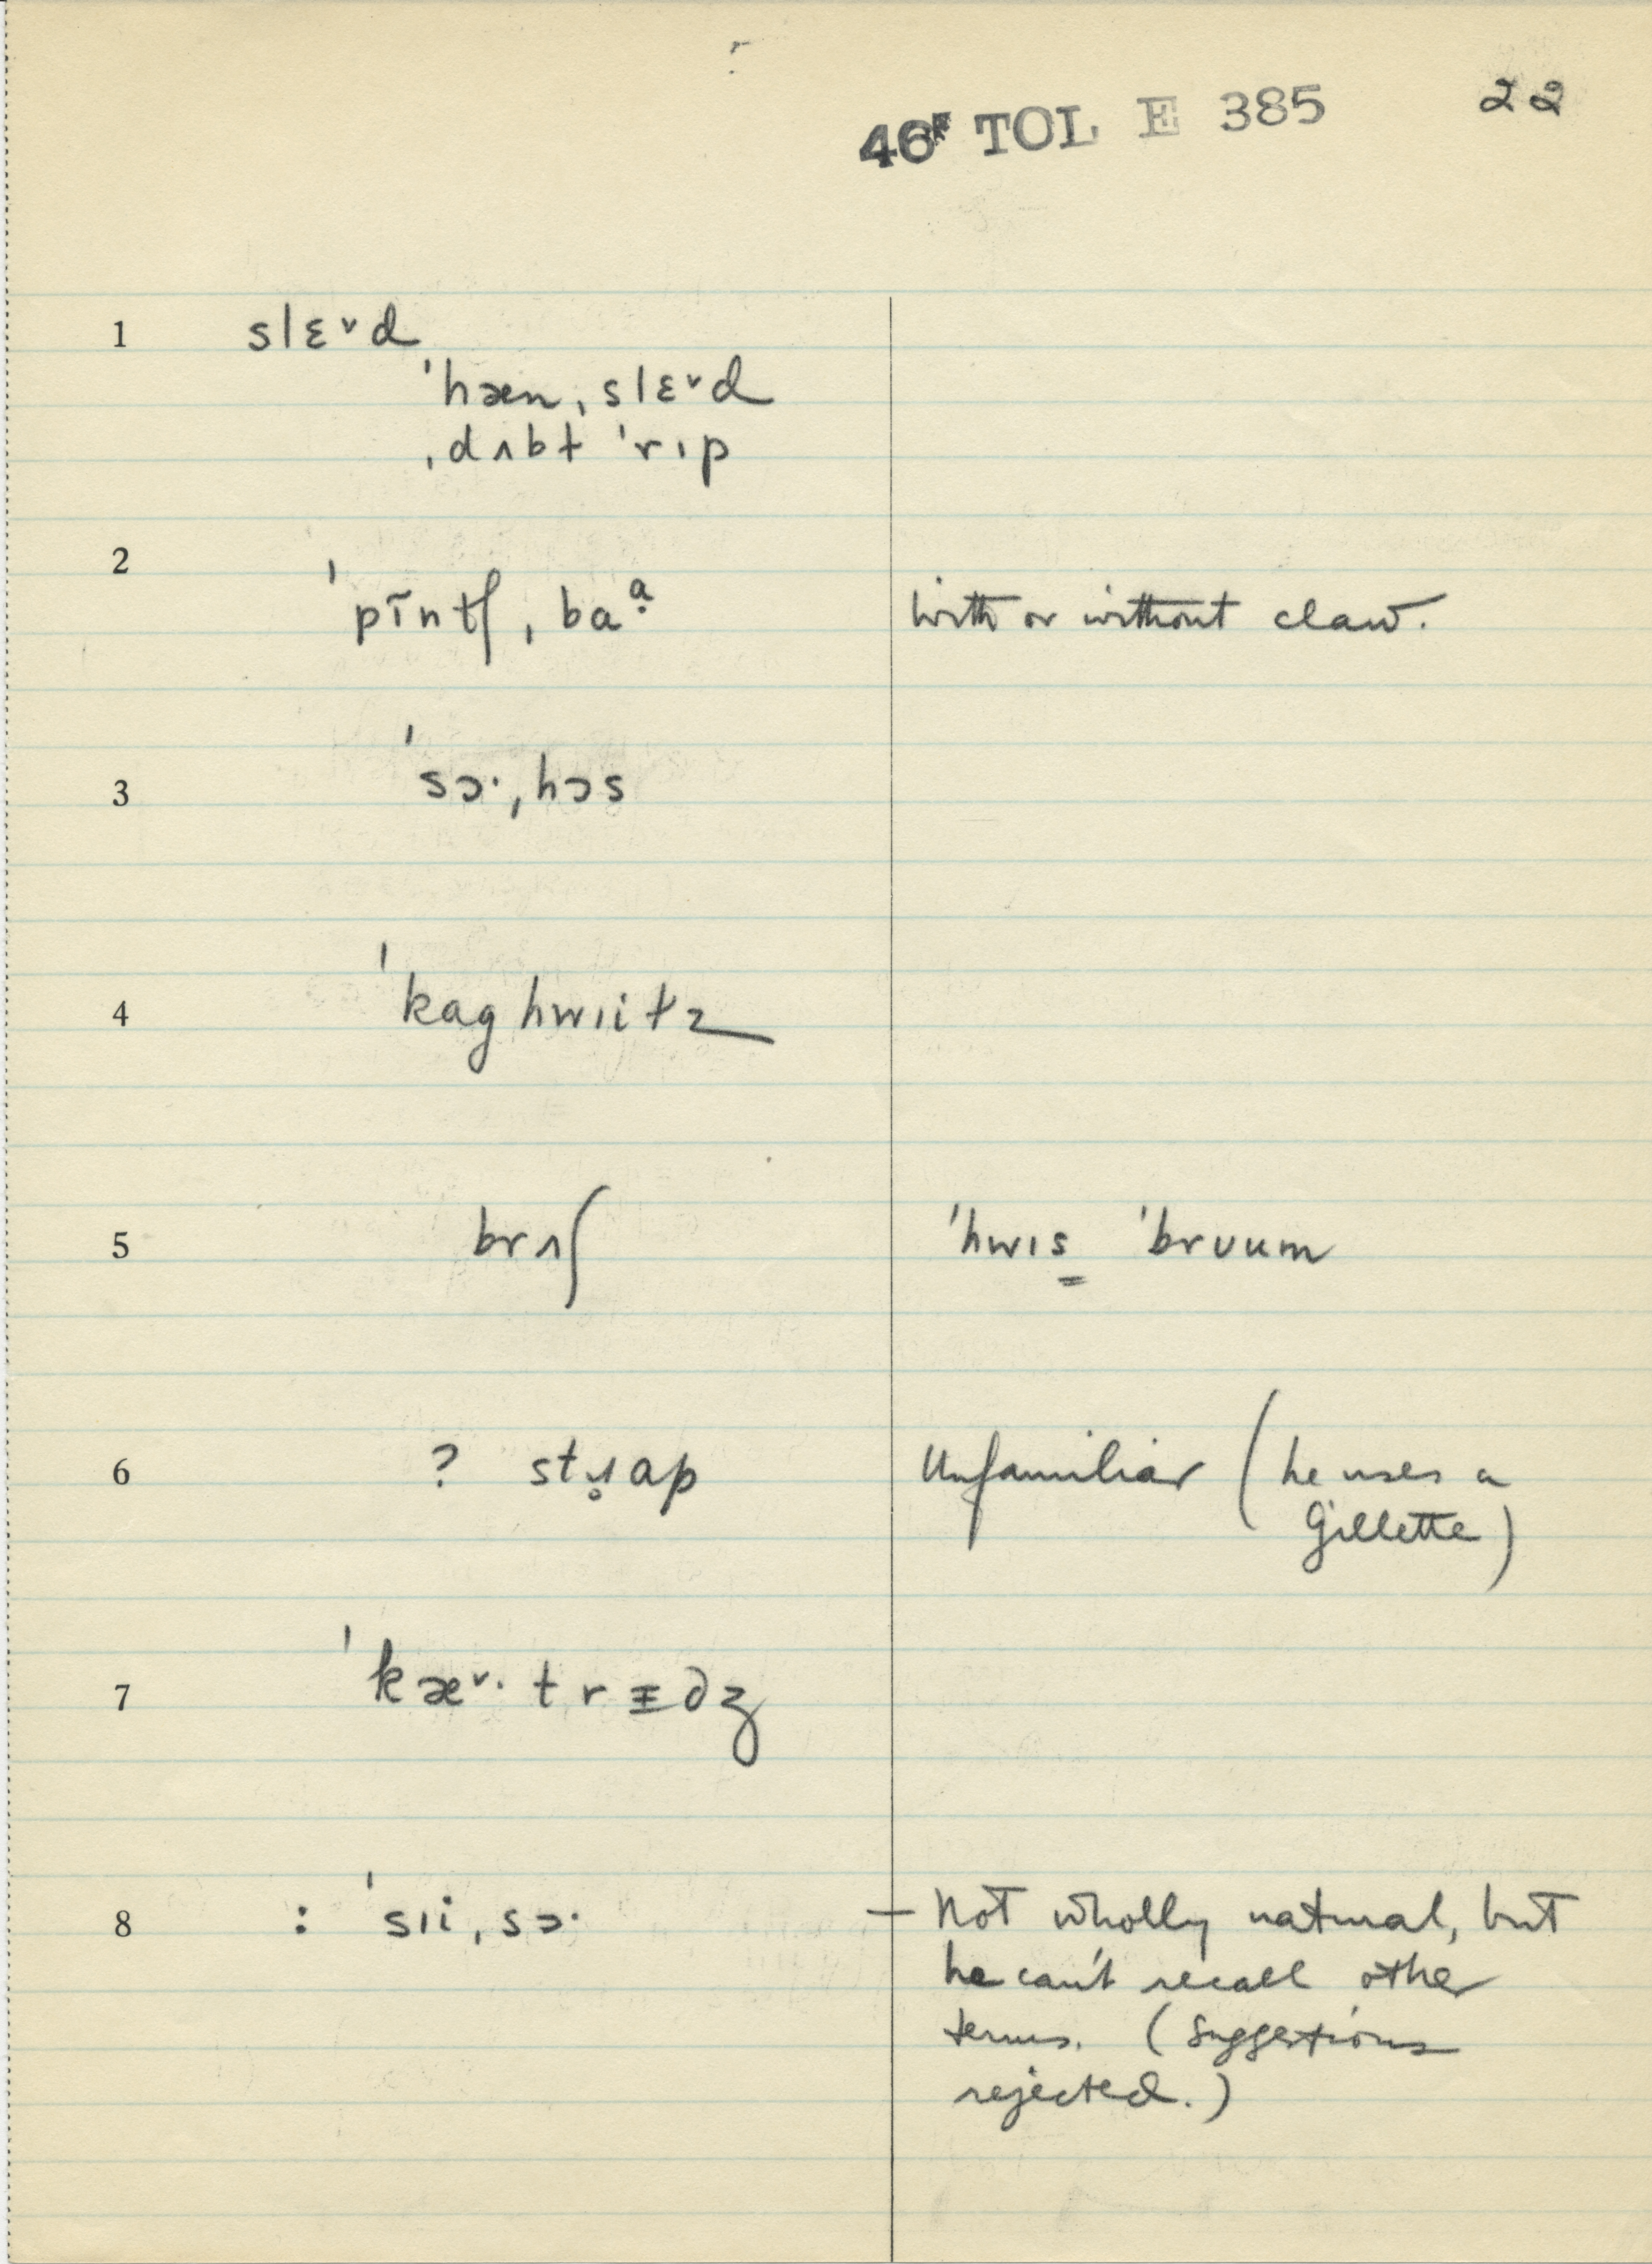 46ᴿ TOL E 385 22
1 slɛ˅d
ˈhæn ˌslɛ˅d
ˌdʌbt ˈrɪp
2 ˈpĩntʃ ˌbaᵃ̣
with or without claw.
3 ˈsɔ· ˌhɔs
4 ˈkag hwɪit z
5 brʌʃ ˈhwɪs̳ ˈbrʊum
6 ? stɹ̥ap Unfamiliar (he uses a
Gillette)
7 ˈkæ˅· trᵻdʒ
8 : ˈsɪi ˌsɔ· — Not wholly natural, but
he can't recall other
terms. (Suggestions
rejected.)